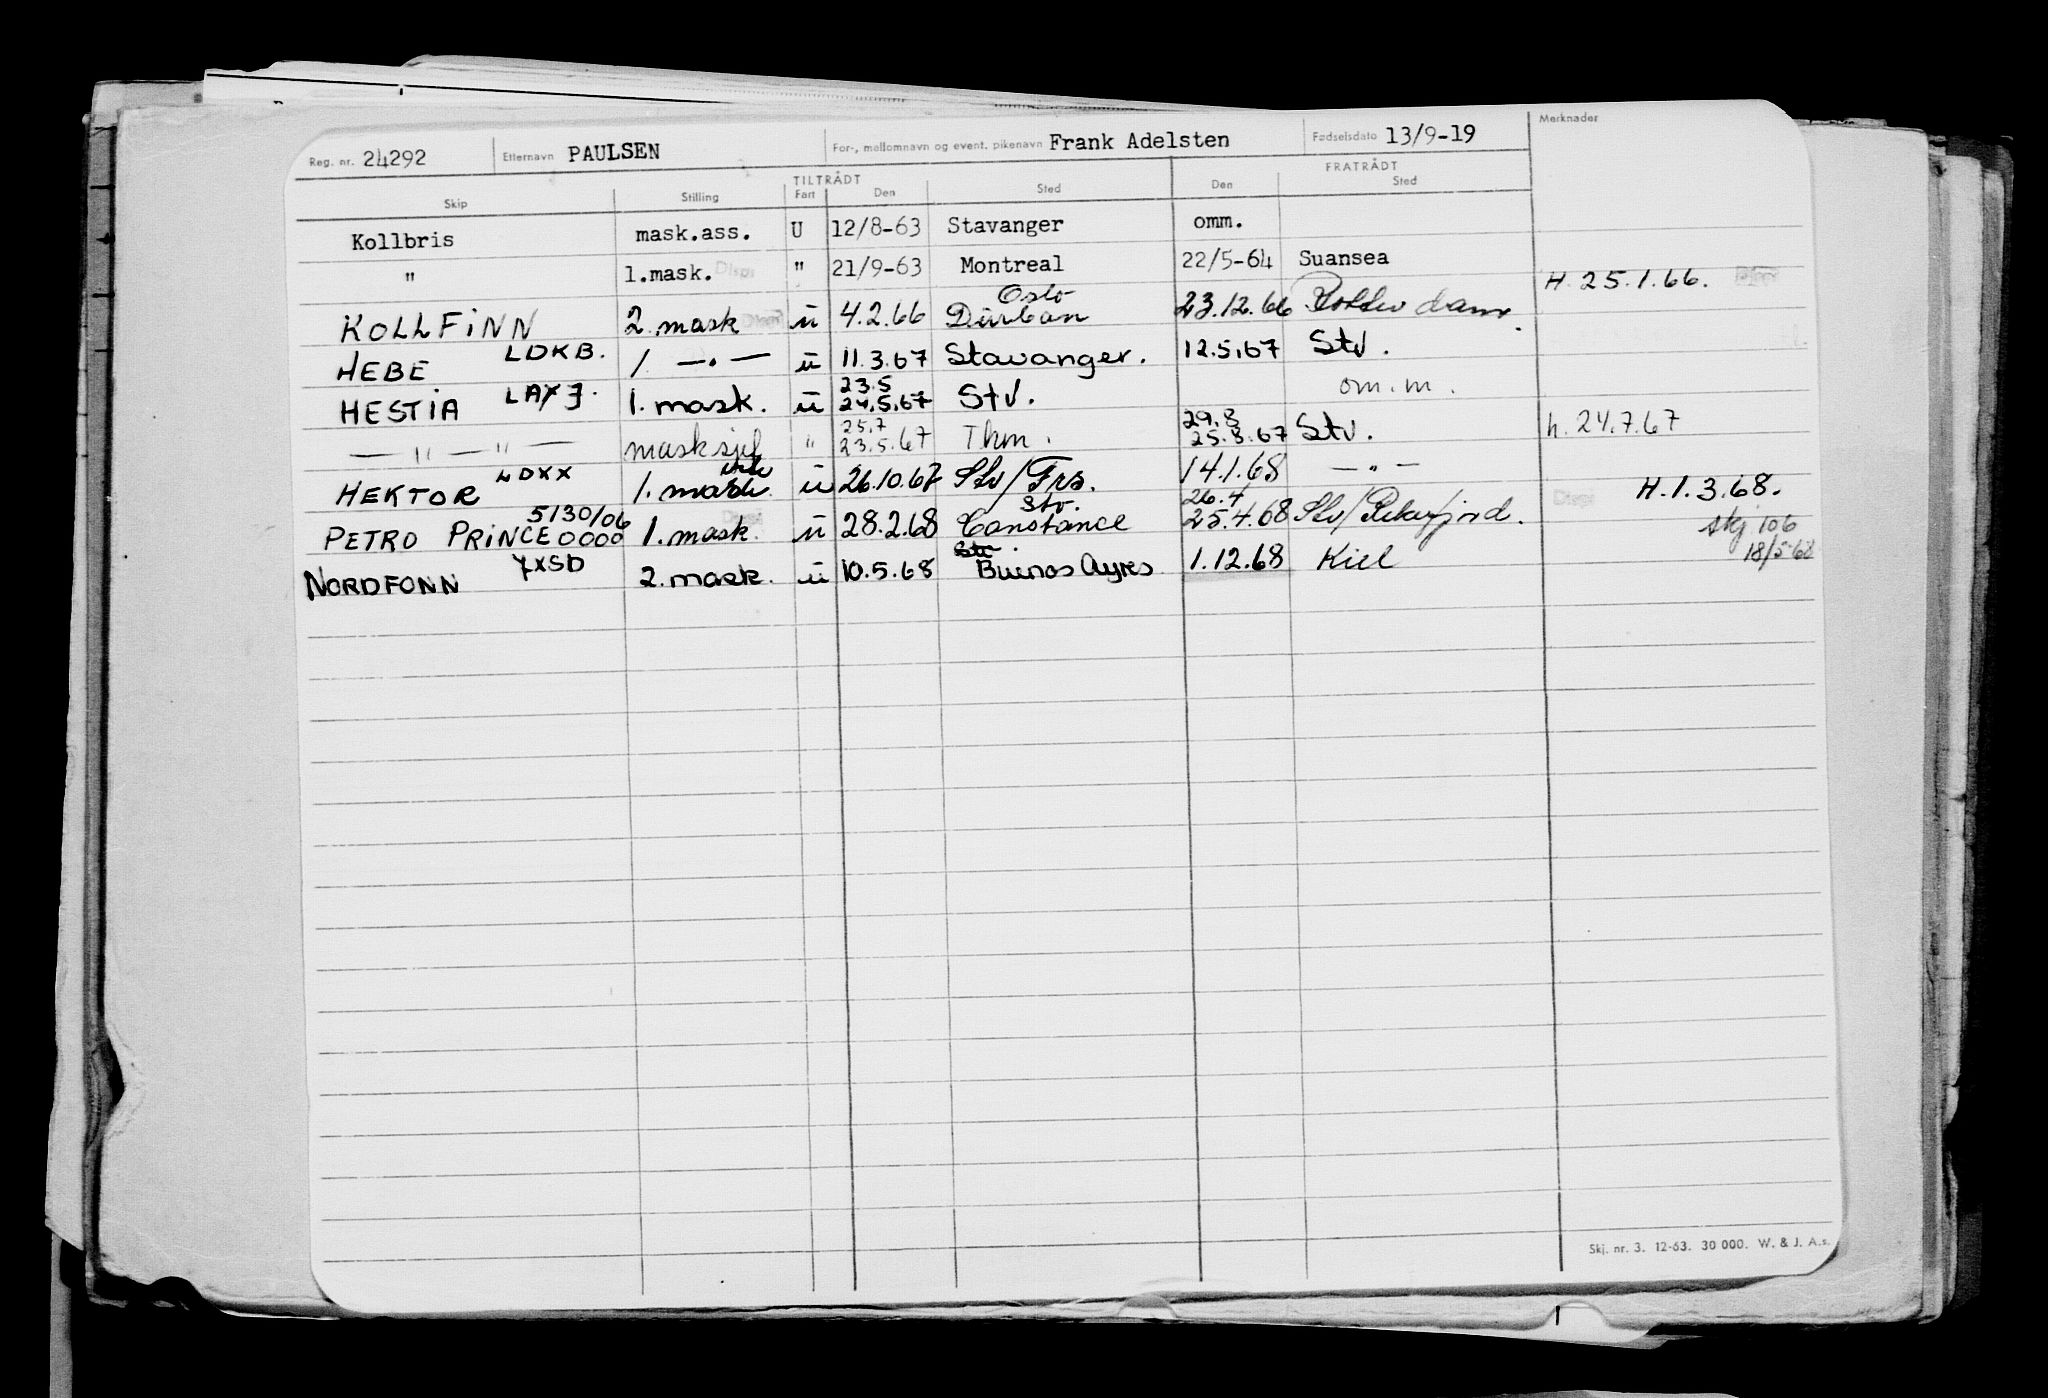 Reg. nr. 24292 Etternavn PAULSEN For-, mellomnavn og event. pikenavn Frank Adelsten Fødselsdato 13/9-19 Merknader
TILTRÅDT FRATRÅDT
Skip Stilling Fart Den Sted Den Sted
Kollbris mask.ass. U 12/8-63 Stavanger omm.
" 1.mask. Disp " 21/9-63 Montreal 22/5-64 Suansea
Oslo H. 25.1.66. Disp
KOLLFINN 2. mask Disp ü 4.2.66 Durban 23.12.66 Rotterdam.
HEBE LDKB. 1. —"— ü 11.3.67 Stavanger. 12.5.67 Stv.
23.5
HESTIA LAXJ. 1. mask. ü 24.5.67 Stv. om.m.
25.7 29.8
— " — " — mask sjef " 23.5.67 Thm. 25.8.67 Stv. h. 24.7.67
HEKTOR LDXX 1. mask. ü 26.10.67 Stv/Frs. 14.1.68 —"—
5130/06 Stv. 26.4 Disp H. 1.3.68.
PETRO PRINCE 0000 1. mask. ü 28.2.68 Constance 25.4.68 Stv/Rekefjord. skj 106
Stv 18/5-68
NORDFONN YXSD 2. mask. ü 10.5.68 Buenos Ayres 1.12.68 Kiel
Skj. nr. 3. 12-63. 30 000. W. & J. A.s.